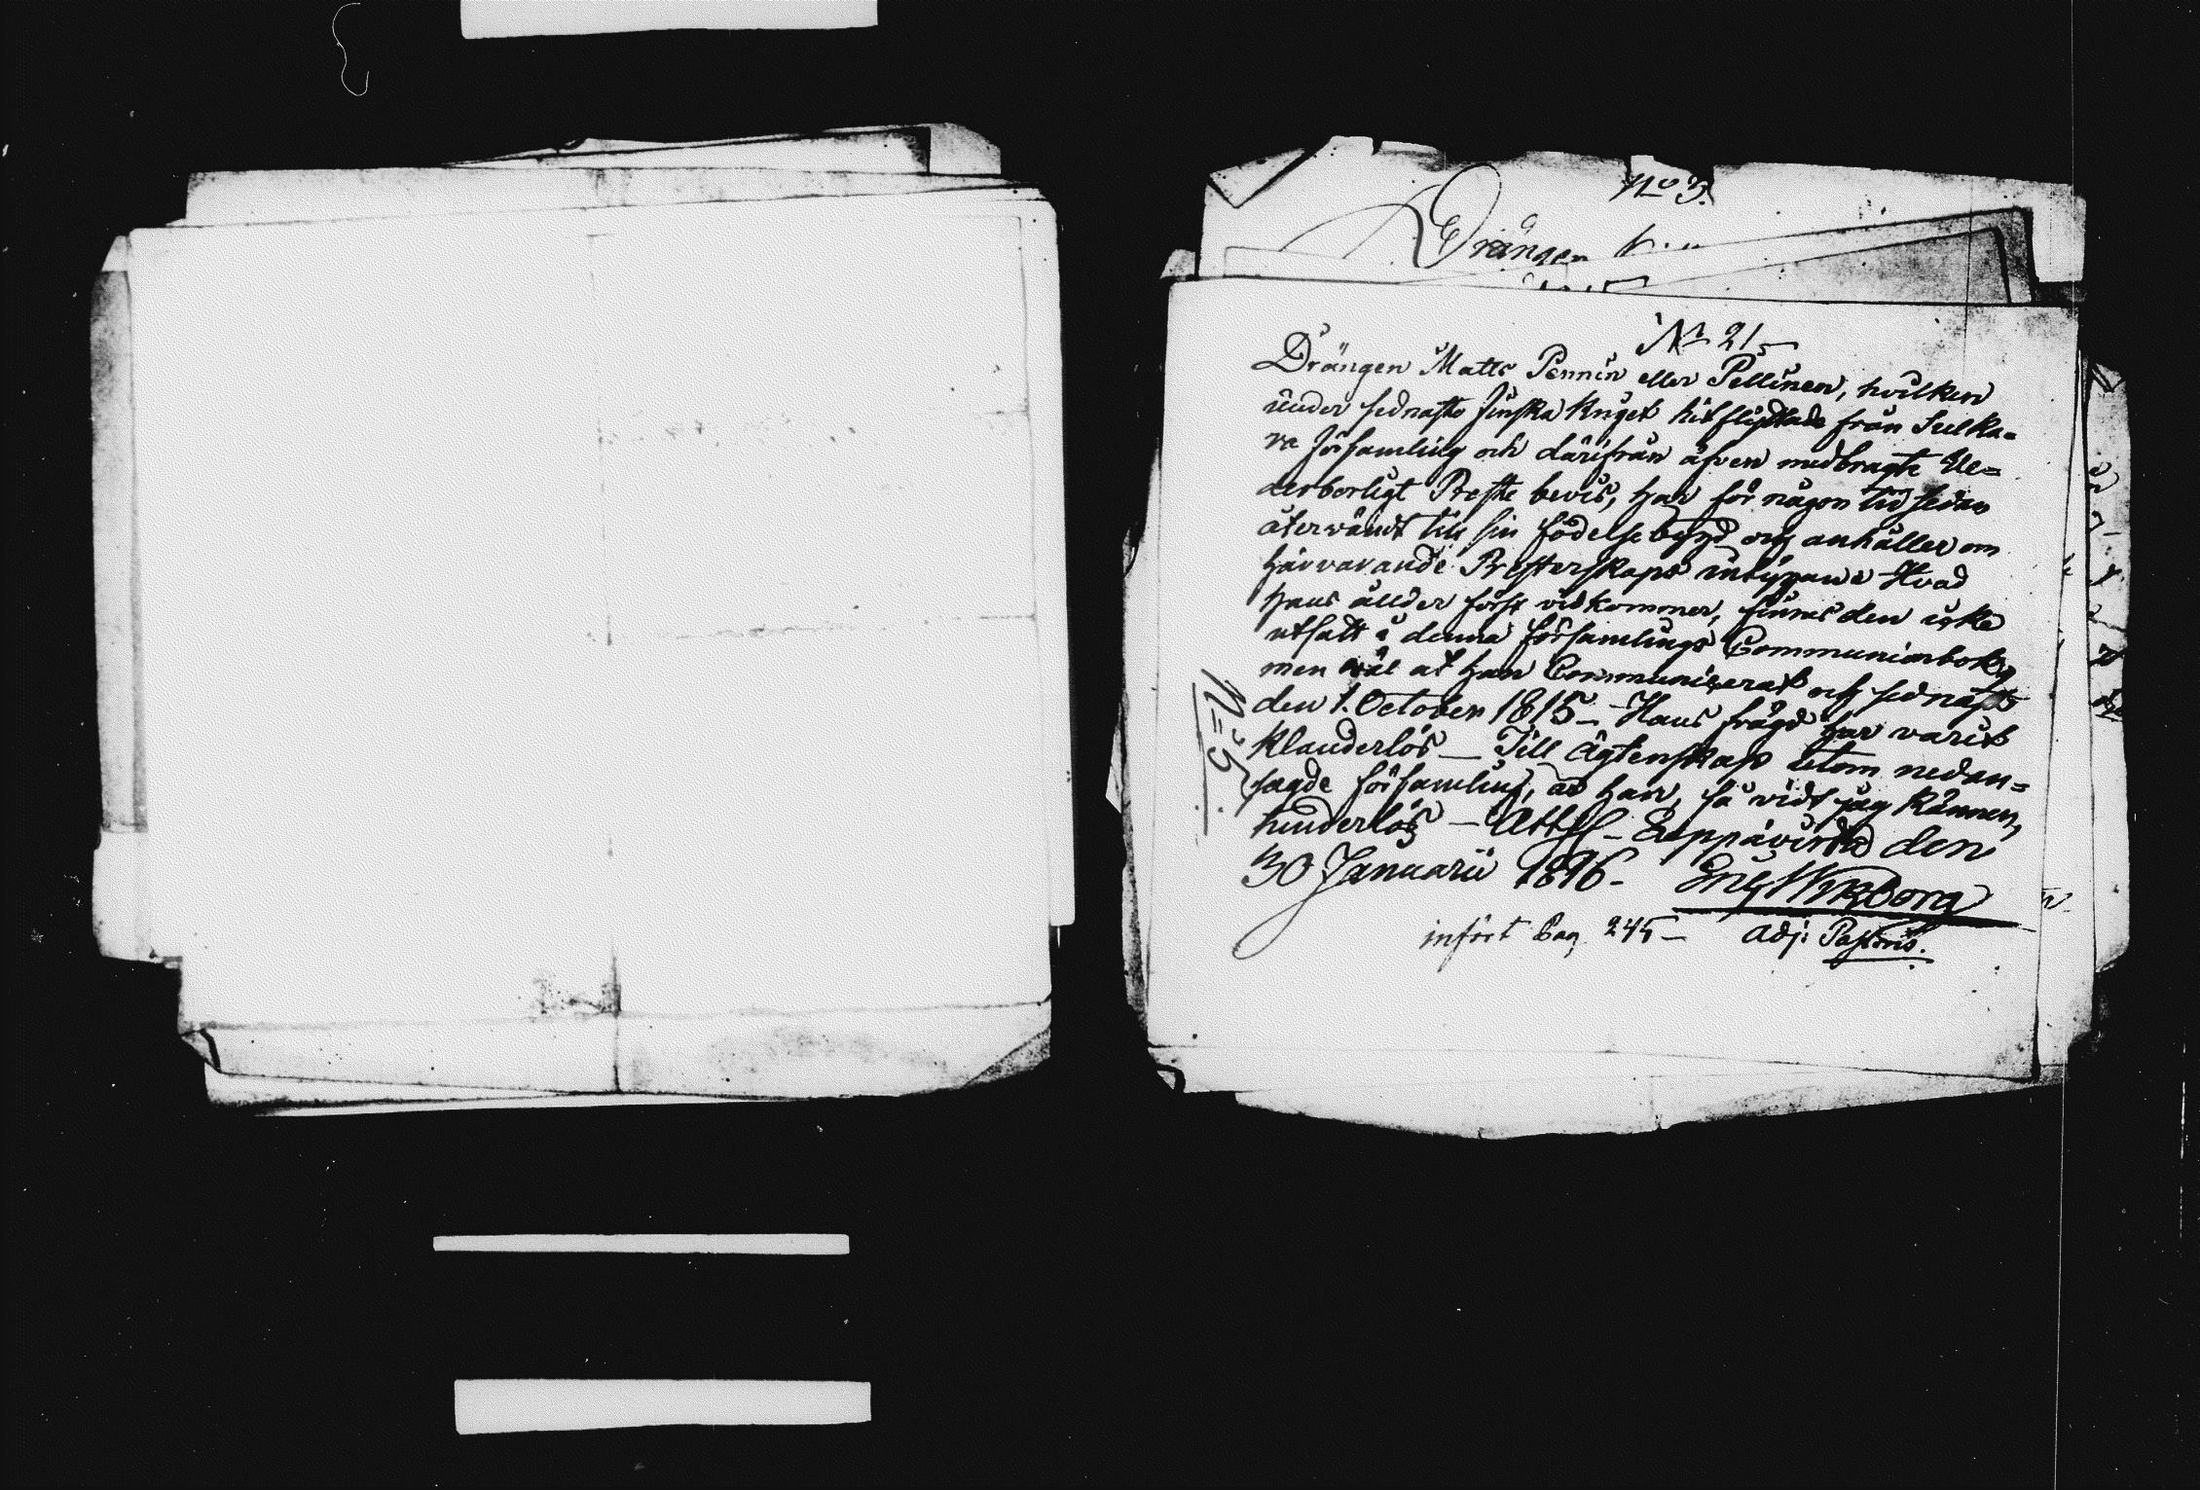 No 3.
Drängen
No 21
Drängen Matts Pennin eller Pellinen, hvilken
under sednaste finska kriget hitflyttade från Sulka=
va församling och därifrån äfven medbragte Ve=
derborligt Preste bevis, har för någon tid sedan
återvändt till sin födelsebygd och anhåller om
härvarande Presterskaps intygande. Hvad
hans ålder först vidkommer, finnes den icke
utsatt i denna församlings Communionbok,
men väl at han Communicerat och sednast
den 1. October 1815 – Hans frägd har varit
klanderlös – Till ägtenskap utom nedan=
sagde församling, är han, så vidt jag känner,
hinderlös – Att. Leppävirta den
30 Januarii 1816.
Adj: Pastoris.
infört Pag. 245 –
No 5.